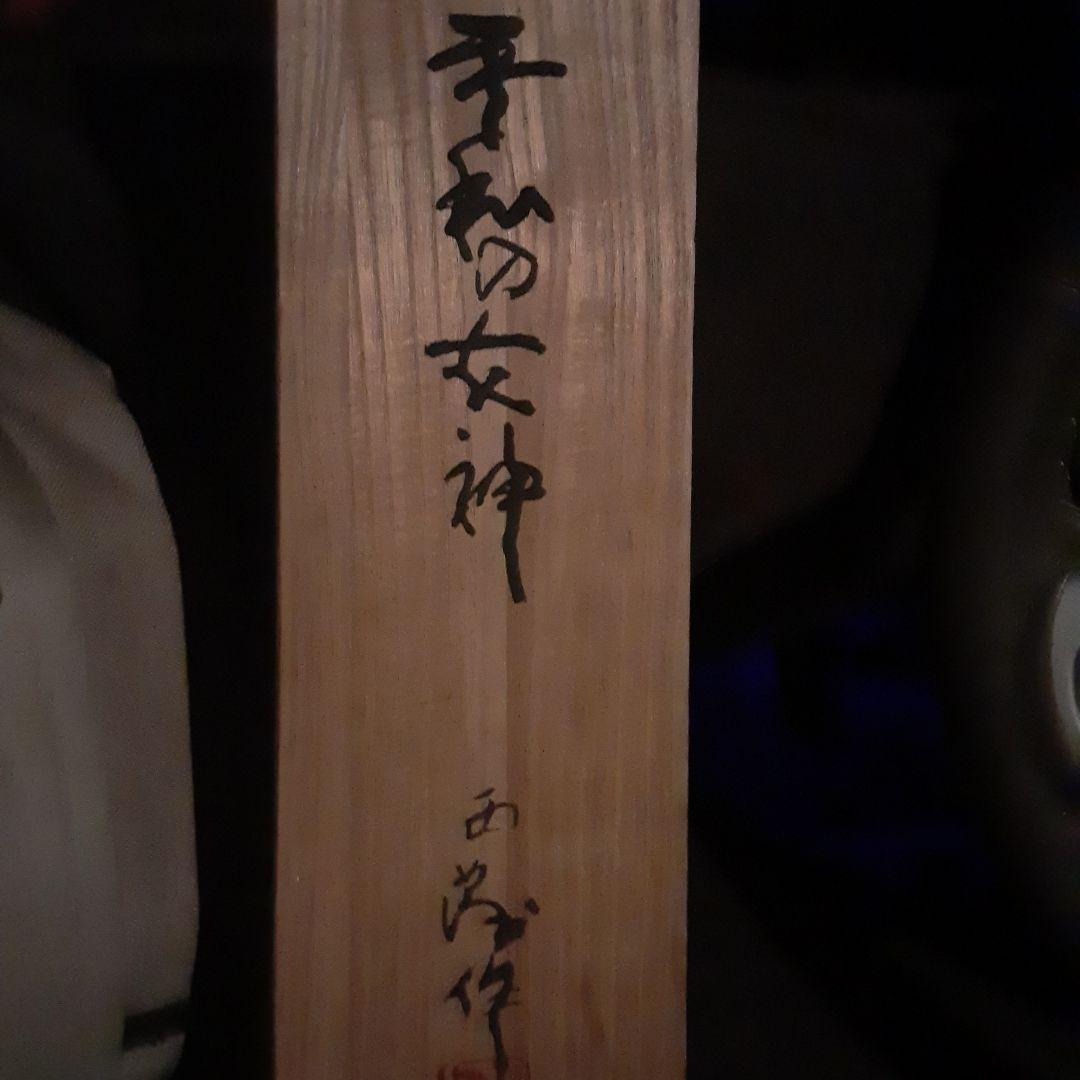 平和の女神
西望作